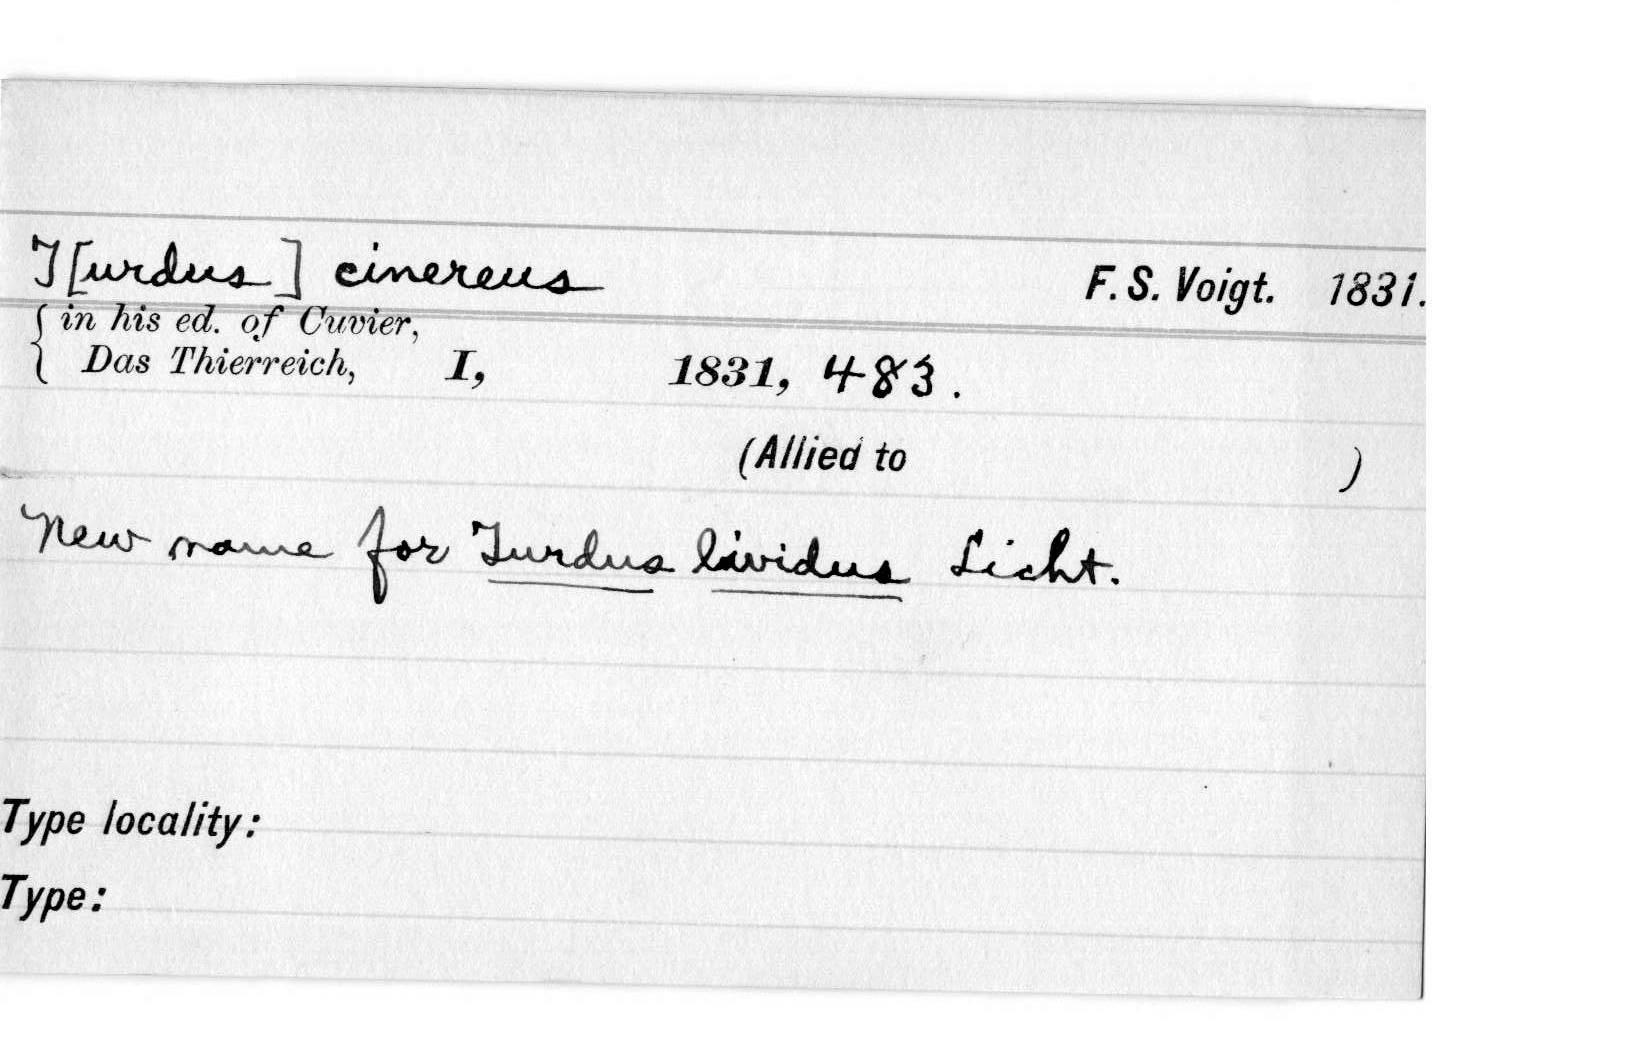 T[urdus] cinereus F. S. Voigt. 1831.
{ in his ed. of Cuvier,
Das Thierreich, I, 1831, 483.
(Allied to )
New name for Turdus lividus Licht.
Type locality:
Type: